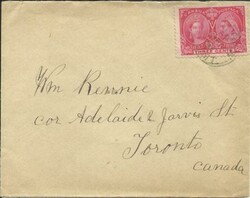 THREE CENTS
Wm Rennie
cor Adelaide & Jarvis St
Toronto
Canada